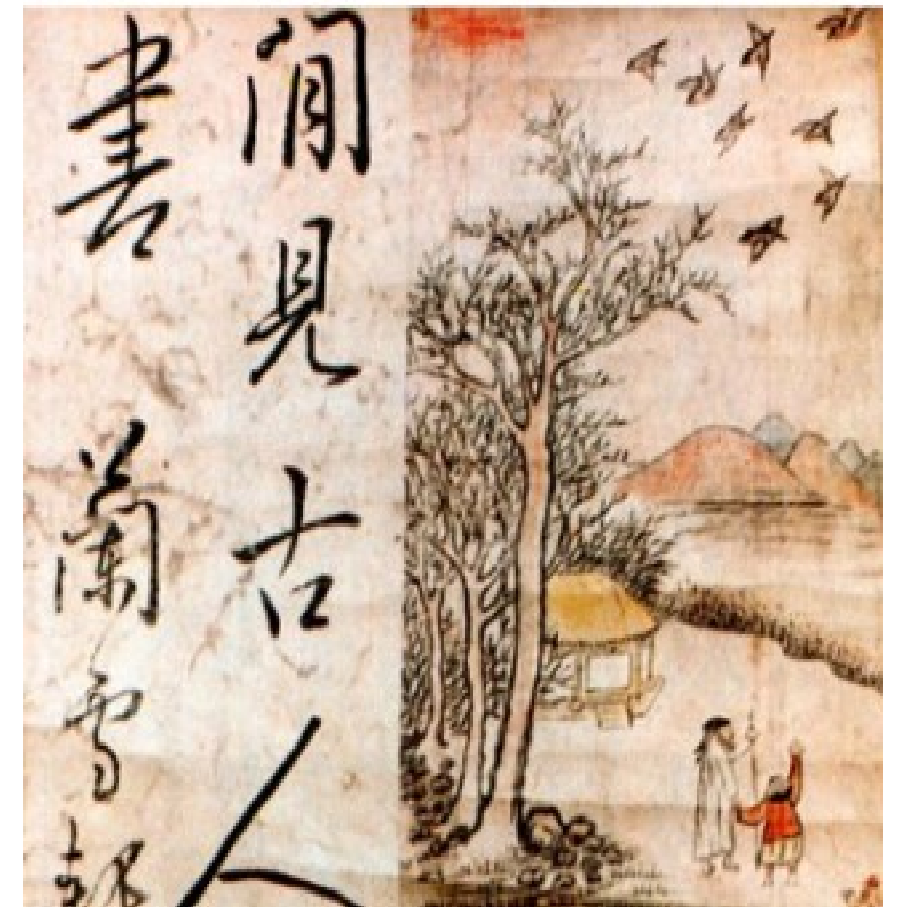 閒見古人
書 蘭雪